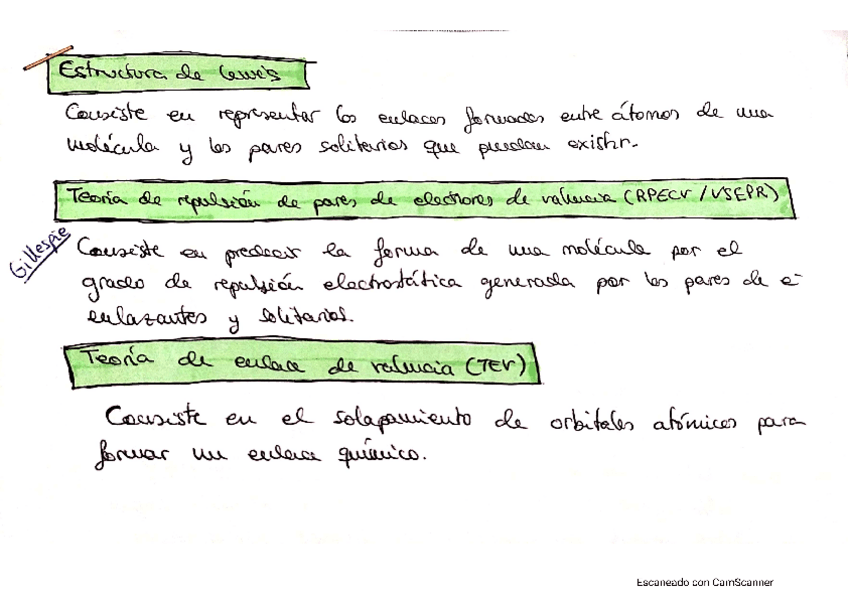 Estructura de Lewis
Consiste en representar los enlaces formados entre átomos de una
molécula y los pares solitarios que puedan existir.
Teoría de repulsión de pares de electrones de valencia (RPECV/VSEPR)
Gillespie
Consiste en predecir la forma de una molécula por el
grado de repulsión electrostática generada por los pares de e-
enlazantes y solitarios.
Teoría de enlace de valencia (TEV)
Consiste en el solapamiento de orbitales atómicos para
formar un enlace químico.
Escaneado con CamScanner